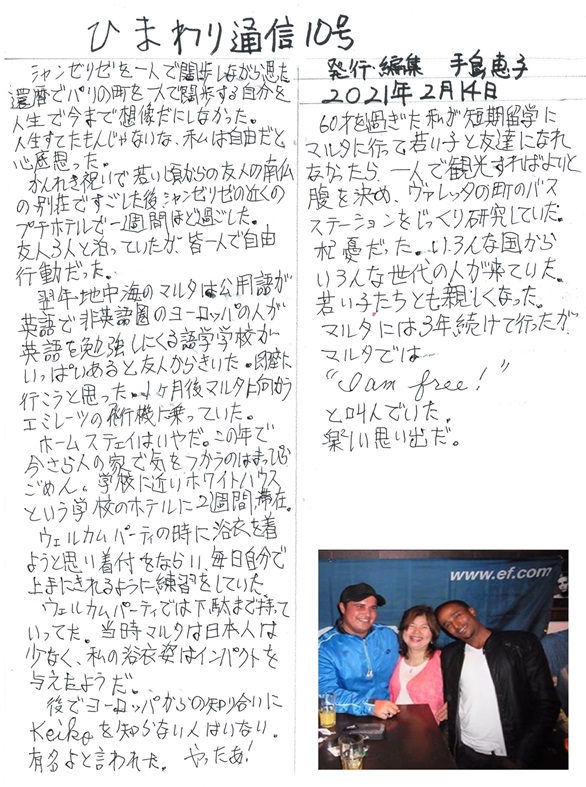 ひまわり通信10号
シャンゼリゼを一人で闊歩しながら思った
還暦でパリの町を一人で闊歩する自分を
人生で今まで想像だにしなかった。
人生すてたもんじゃないな、私は自由だと
心底思った。
かんれき祝いで若い頃からの友人の南仏
の別荘ですごした後シャンゼリゼの近くの
プチホテルで一週間ほど過ごした。
友人3人と泊っていたが、皆一人で自由
行動だった。
翌年、地中海のマルタは公用語が
英語で非英語圏のヨーロッパの人が
英語を勉強しにくる語学学校が
いっぱいあると友人からきいた。即座に
行こうと思った。1ヶ月後マルタに向かう
エミレーツの飛行機に乗っていた。
ホームステイはいやだ。この年で
今さら人の家で気をつかうのはまっぴら
ごめん。学校に近いホワイトハウス
という学校のホテルに2週間滞在。
ウェルカムパーティの時に浴衣を着
ようと思い着付をならい、毎日自分で
上手にきれるように練習をしていた。
ウェルカムパーティでは下駄まで持って
いってた。当時マルタは日本人は
少なく、私の浴衣姿はインパクトを
与えたようだ。
後でヨーロッパからの知り合いに
Keikoを知らない人はいない。
有名よと言われた。やったあ!
発行・編集 手島恵子
2021年2月14日
60才を過ぎた私が短期留学に
マルタに行って若い子と友達になれ
なかったら、一人で観光すればよいと
腹を決め、ヴァレッタの町のバス
ステーションをじっくり研究していた。
杞憂だった。いろんな国から
いろんな世代の人が来ていた。
若い子たちとも親しくなった。
マルタには3年続けて行ったが
マルタでは
"I am free!"
と叫んでいた。
楽しい思い出だ。
www.ef.com